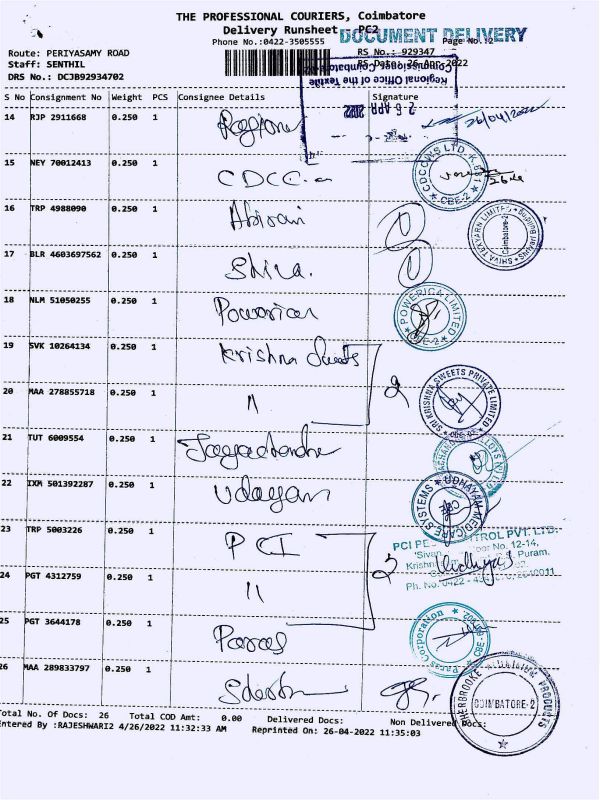 THE PROFESSIONAL COURIERS, Coimbatore
Delivery Runsheet PC2
DOCUMENT DELIVERY
Phone No.:0422-3505555
Page No.12
Route: PERIYASAMY ROAD
RS No.: 929347
Staff: SENTHIL
RS Date: 26-Apr-2022
DRS No.: DCJB92934702
Regional Office of the Textile
Commissioner, Coimbatore
26 APR 2022
S No Consignment No Weight PCS Consignee Details Signature
14 RJP 2911668 0.250 1 26/04/2022
15 NEY 70012413 0.250 1 CDCC
CBE-2
16 TRP 4988090 0.250 1 Abirami
SHIVA TEXYARN LIMITED
Coimbatore-2
17 BLR 4603697562 0.250 1 Shiva.
18 NLM 51050255 0.250 1
POWERICA LIMITED
CBE-2
19 SVK 10264134 0.250 1 Krishna Sweets
2
20 MAA 278855718 0.250 1 11
SRI KRISHNA SWEETS PRIVATE LIMITED
21 TUT 6009554 0.250 1
22 IXM 501392287 0.250 1 Udayam
UDHAYAM MEDICARE SYSTEMS
CBE
23 TRP 5003226 0.250 1 PCI
PCI PE TROL PVT. LTD.
'Sivan or No. 12-14,
Krishn Puram,
Ph. No. 0422 - 434
2
24 PGT 4312759 0.250 1 11
25 PGT 3644178 0.250 1 Paras
Paras Corporation
26 MAA 289833797 0.250 1
SHERBROOKE PRODUCTS
COIMBATORE-2
Total No. Of Docs: 26 Total COD Amt: 0.00 Delivered Docs: Non Delivered Docs:
Entered By :RAJESHWARI2 4/26/2022 11:32:33 AM Reprinted On: 26-04-2022 11:35:03